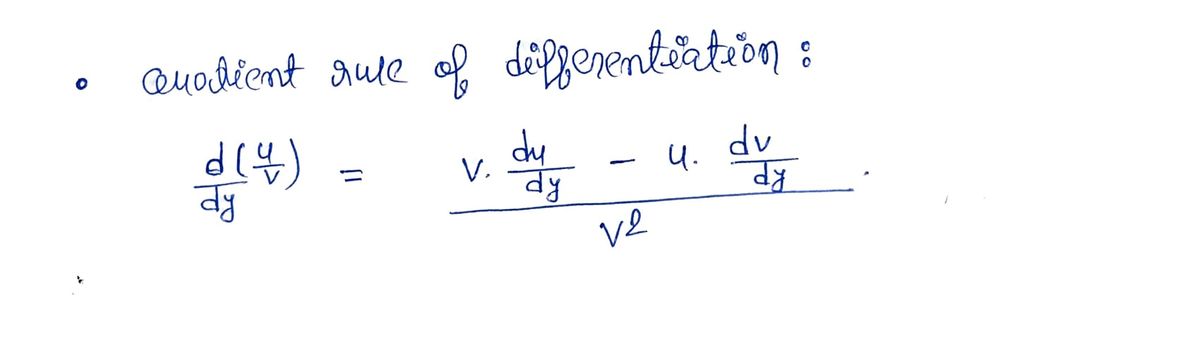 • Quodient rule of differentiation :
d(u/v)/dy = (v. du/dy - u. dv/dy)/v2 .